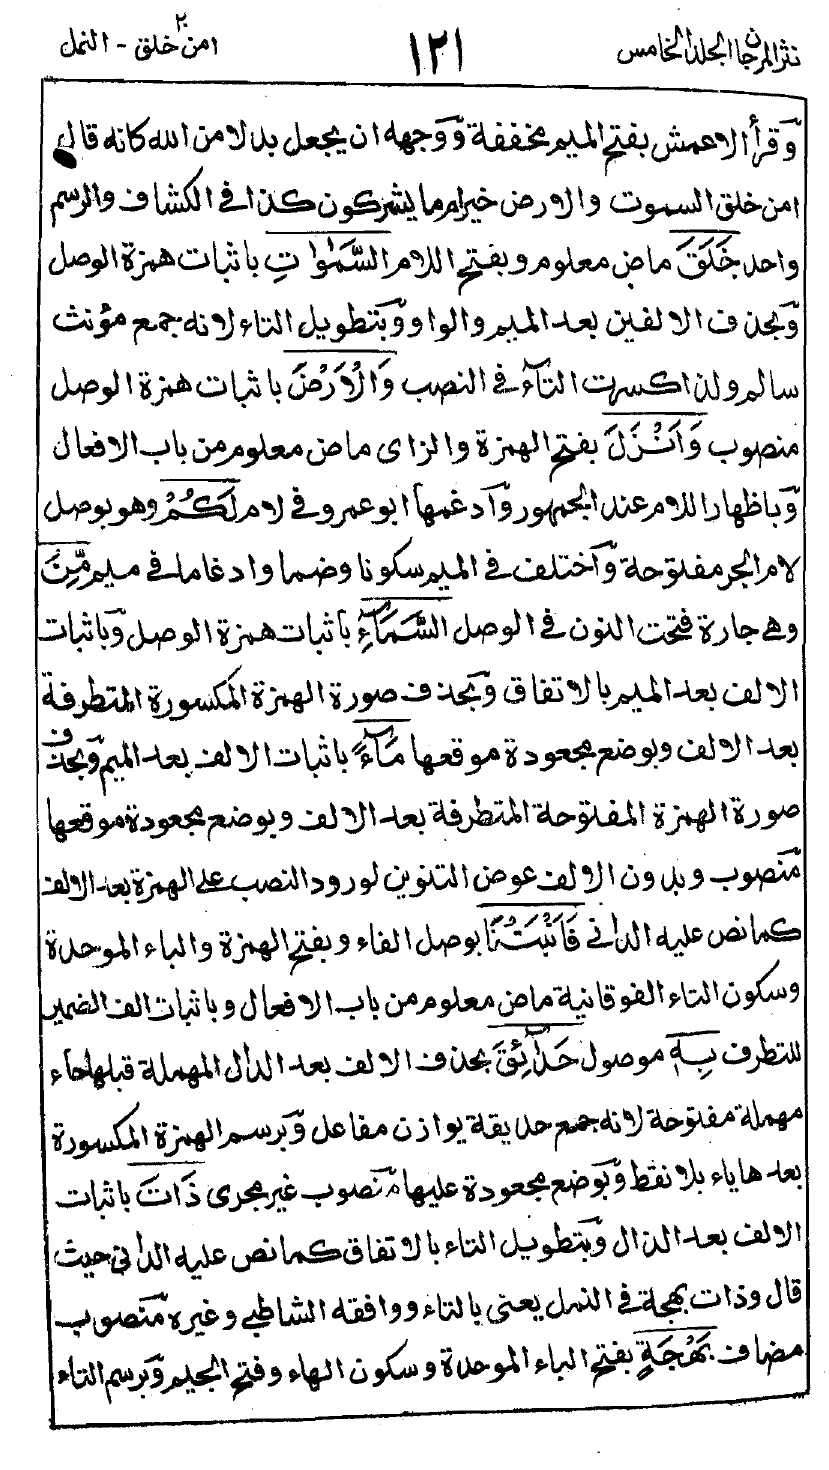 نثر المرجان الجلد الخامس
١٢١
امن خلق ٢٠ - النمل
وقرأ الاعمش بفتح الميم مخففة ووجهه ان يجعل بدلا من الله كانه قال
امن خلق السموت والارض خير ام ما يشركون كذا في الكشاف والرسم
واحد خَلَقَ ماض معلوم وبفتح اللام السَّمٰوٰتِ باثبات همزة الوصل
وبحذف الالفين بعد الميم والواو وبتطويل التاء لانه جمع مؤنث
سالم ولذا كسرت التاء في النصب وَالْاَرْضَ باثبات همزة الوصل
منصوب وَاَنْزَلَ بفتح الهمزة والزاى ماض معلوم من باب الافعال
وباظهار اللام عند الجمهور وآدغمها ابو عمرو في لام لَكُمْ وهو بوصل
لام الجر مفتوحة وآختلف في الميم سكونا وضما وادغاما في ميم مِّنَ
وهي جارة فتحت النون في الوصل السَّمَآءِ باثبات همزة الوصل وباثبات
الالف بعد الميم بالاتفاق وبحذف صورة الهمزة المكسورة المتطرفة
بعد الالف وبوضع مجعودة موقعها مَآءً باثبات الالف بعد الميم وبحذف
صورة الهمزة المفتوحة المتطرفة بعد الالف وبوضع مجعودة موقعها
منصوب وبدون الالف عوض التنوين لورود النصب على الهمزة بعد الالف
كما نص عليه الداني فَاَنْبَتْنَا بوصل الفاء وبفتح الهمزة والباء الموحدة
وسكون التاء الفوقانية ماض معلوم من باب الافعال وباثبات الف الضمير
للتطرف بِهٖ موصول حَدَآئِقَ بحذف الالف بعد الدال المهملة قبلها حاء
مهملة مفتوحة لانه جمع حديقة يوازن مفاعل وبرسم الهمزة المكسورة
بعدها ياء بلا نقط وبوضع مجعودة عليها منصوب غير مجرى ذَاتَ باثبات
الالف بعد الذال وبتطويل التاء بالاتفاق كما نص عليه الداني حيث
قال وذات بهجة في النمل يعنى بالتاء ووافقه الشاطبي وغيره منصوب
مضاف بَهْجَةٍ بفتح الباء الموحدة وسكون الهاء وفتح الجيم وبرسم التاء